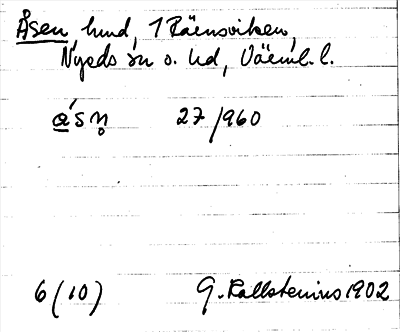 Åsen, hmd, 1 Räensviken,
Nyeds sn o. hd, Värml. l.
a´sn̥ 27/960
6(10) G. Kallstenius 1902